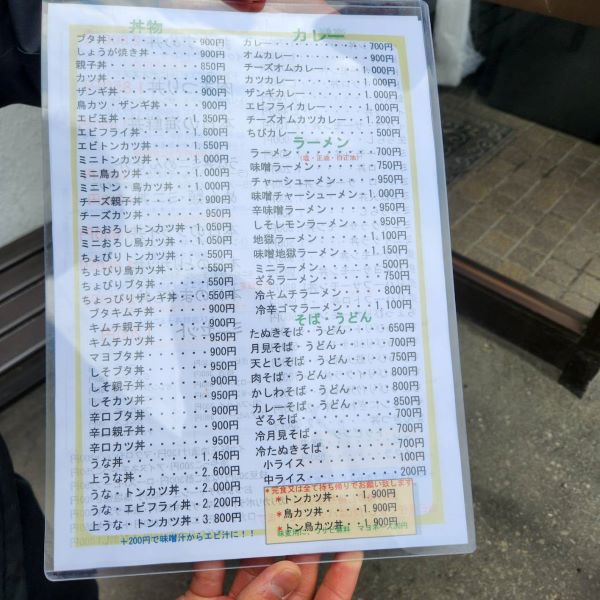 丼物
ブタ丼・・・・・・・900円
しょうが焼き丼・・・・900円
親子丼・・・・・・・850円
カツ丼・・・・・・・900円
ザンギ丼・・・・・・900円
鳥カツ・ザンギ丼・・・900円
エビ玉丼・・・・・・1.350円
エビフライ丼・・・・1.600円
エビトンカツ丼・・・1.550円
ミニトンカツ丼・・・1.000円
ミニ鳥カツ丼・・・・1.000円
ミニトン・鳥カツ丼・・1.000円
チーズ親子丼・・・・900円
チーズカツ丼・・・・950円
ミニおろしトンカツ丼・1.050円
ミニおろし鳥カツ丼・・1.050円
ちょぴりトンカツ丼・・550円
ちょぴり鳥カツ丼・・・550円
ちょぴりブタ丼・・・・550円
ちょっぴりザンギ丼・・550円
ブタキムチ丼・・・・900円
キムチ親子丼・・・・900円
キムチカツ丼・・・・950円
マヨブタ丼・・・・・900円
しそブタ丼・・・・・900円
しそ親子丼・・・・・900円
しそカツ丼・・・・・950円
辛口ブタ丼・・・・・900円
辛口親子丼・・・・・900円
辛口カツ丼・・・・・950円
うな丼・・・・・・・1.450円
上うな丼・・・・・・2.600円
うな・トンカツ丼・・・2.000円
うな・エビフライ丼・・2.200円
上うな・トンカツ丼・・3.800円
+200円で味噌汁からエビ汁に!!
カレー
カレー・・・・・・・700円
オムカレー・・・・・900円
チーズオムカレー・・・1.000円
カツカレー・・・・・1.000円
ザンギカレー・・・・1.000円
エビフライカレー・・・1.000円
チーズオムカツカレー・・1.200円
ちびカレー・・・・・500円
ラーメン
ラーメン・・・・・・700円
味噌ラーメン・・・・750円
チャーシューメン・・・950円
味噌チャーシューメン・・1.000円
辛味噌ラーメン・・・950円
しそレモンラーメン・・950円
地獄ラーメン・・・・1.100円
味噌地獄ラーメン・・・1.150円
ミニラーメン・・・・500円
ざるラーメン・・・・750円
冷キムチラーメン・・・800円
冷辛ゴマラーメン・・・1.100円
そば・うどん
たぬきそば・うどん・・650円
月見そば・うどん・・・700円
天とじそば・うどん・・750円
肉そば・うどん・・・800円
かしわそば・うどん・・800円
カレーそば・うどん・・850円
ざるそば・・・・・・700円
冷月見そば・・・・・700円
冷たぬきそば・・・・700円
小ライス・・・・・・100円
中ライス・・・・・・200円
*完食又は全て持ち帰りでお願い致します
*トンカツ丼・・・1.900円
*鳥カツ丼・・・・1.900円
*トン鳥カツ丼・・・1.900円